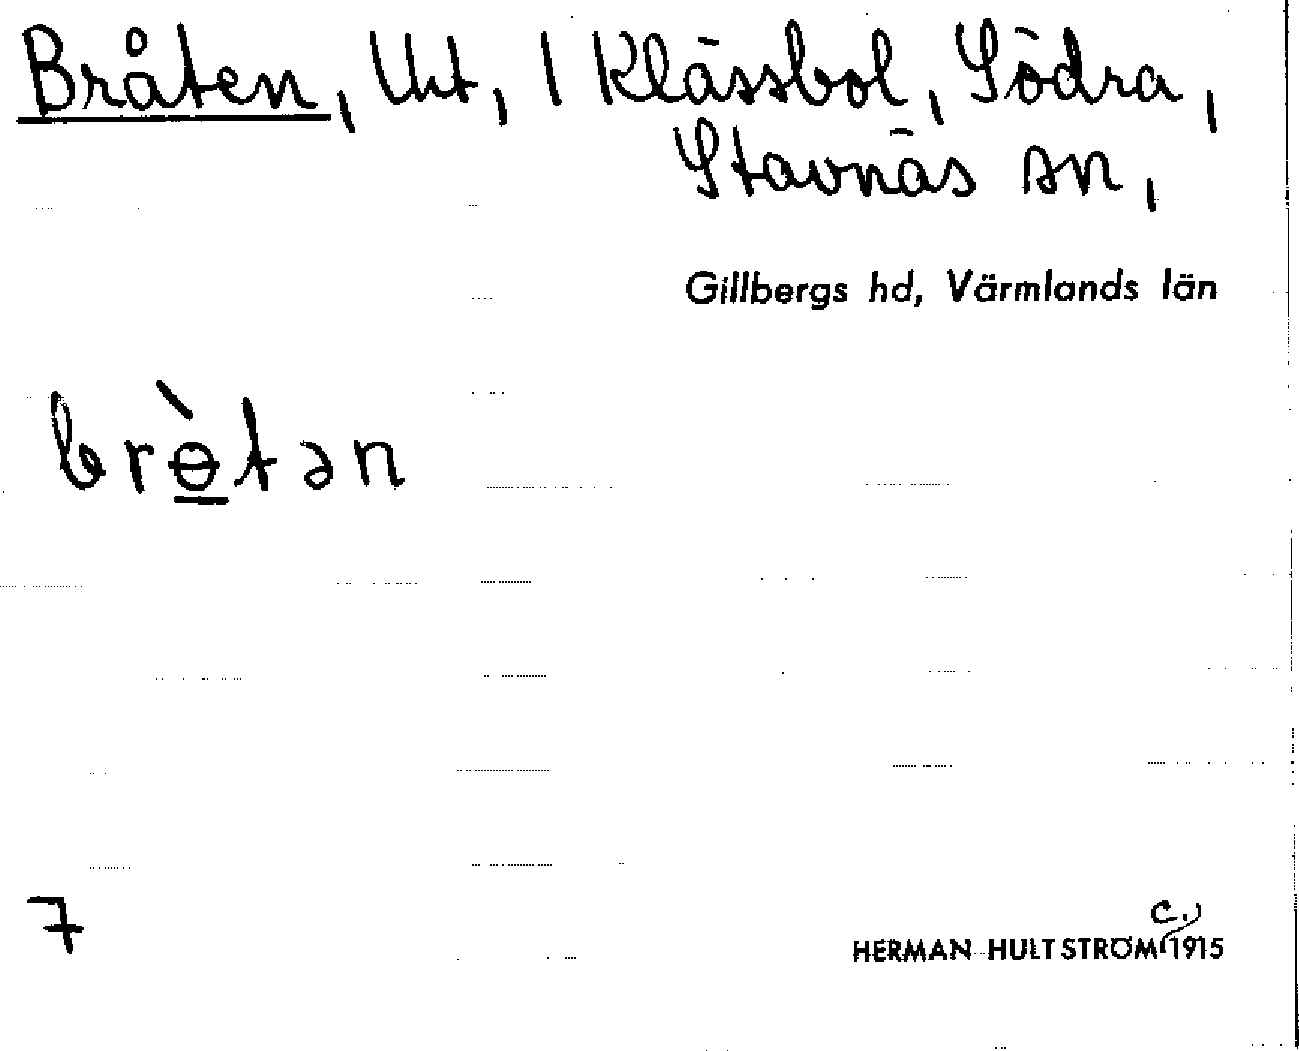 Bråten, Uut, 1 Klässbol, Södra,
Stavnäs sn,
Gillbergs hd, Värmlands län
brɵ̀tən
7
HERMAN HULTSTRÖM c. 1915